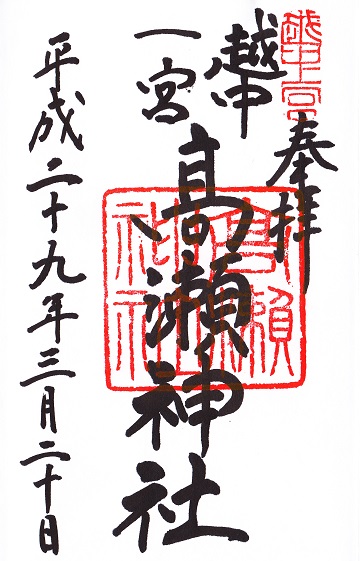 奉拝
越中
一宮
高瀬神社
平成二十九年三月二十日
越中一宮
高瀬神社